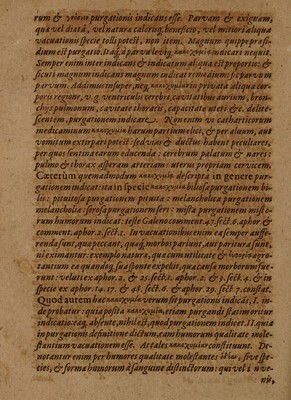 rum & purgationis indicans esse. Parvam & exiguam,
quæ vel diæta, vel natura calorisq. beneficio, vel mitiori aliqua
vacuationis specie tolli potest, non item. Magnum quippe præsi-
dium est purgatio. Itaq. à parva levíq. κακοχυμίᾳ indicari nequit.
Semper enim inter indicans & indicatum aliqua est proportio: &
sicuti magnum indicans magnum indicat remedium: sic parvum
parvum. Addimus insuper, neq. κακοχυμίαν in privata aliqua cor-
poris regione, v. g. ventriculi cerebri, cavitatibus aurium, bron-
chijs pulmonum, cavitate thoracis, capacitate uteri &c. delite-
scentem, purgationem indicare. Non enim vi catharticorum
medicaminum κακοχυμία harum partium elici, & per alvum, aut
vomitum extirpari potest: sed vias & ductus habent peculiares,
per quos sentinæ earum educendæ: cerebrum palatum & nares:
pulmo & thorax asperam arteriam: uterus propriam cervicem.
Cæterùm quemadmodum κακοχυμία descripta in genere pur-
gationem indicat: ita in specie κακοχυμία biliosa purgationem bi-
lis: pituitosa purgationem pituitæ: melancholica purgationem
melancholiæ: serosa purgationem seri: mosta purgationem misto-
rum humorum indicat: teste Galeno comment. 47. sect. 6. aphor. &
comment. aphor. 2. sect. 1. In vacuationibus enim ea semper auffe-
renda sunt, quæ peccant, quæq. morbos pariunt, aut paritura sunt,
ni eximantur: exemplo natura, quæ cum utilitate & ægro-
tantium ea quandoq. sua sponte expellit, quæ causa morborum fue-
runt: velut ex aphor. 2. & 21. sect. 1. aphor. 2. & 3. sect. 4. & in
specie ex aphor. 14. 17. & 48. sect. 6. & aphor. 29. sect. 7. constat.
Quod autem hæc κακοχυμία verum sit purgationis indicans, 1. in-
de probatur: quia posita κακοχυμίᾳ, etiam purgandi statim oritur
indicatio: eaq. absente, nihil est, quod purgationem indicet. 11. quia
in purgationis definitione dictum, eam humorum qualitate mole-
stantium vacuationem esse. At tales κακοχυμίαν constituunt. De-
notantur enim per humores qualitate molestantes ἰδίας, sive spe-
cies, & forma humorum à sanguine distinctorum: qui vel in ve-
nis,